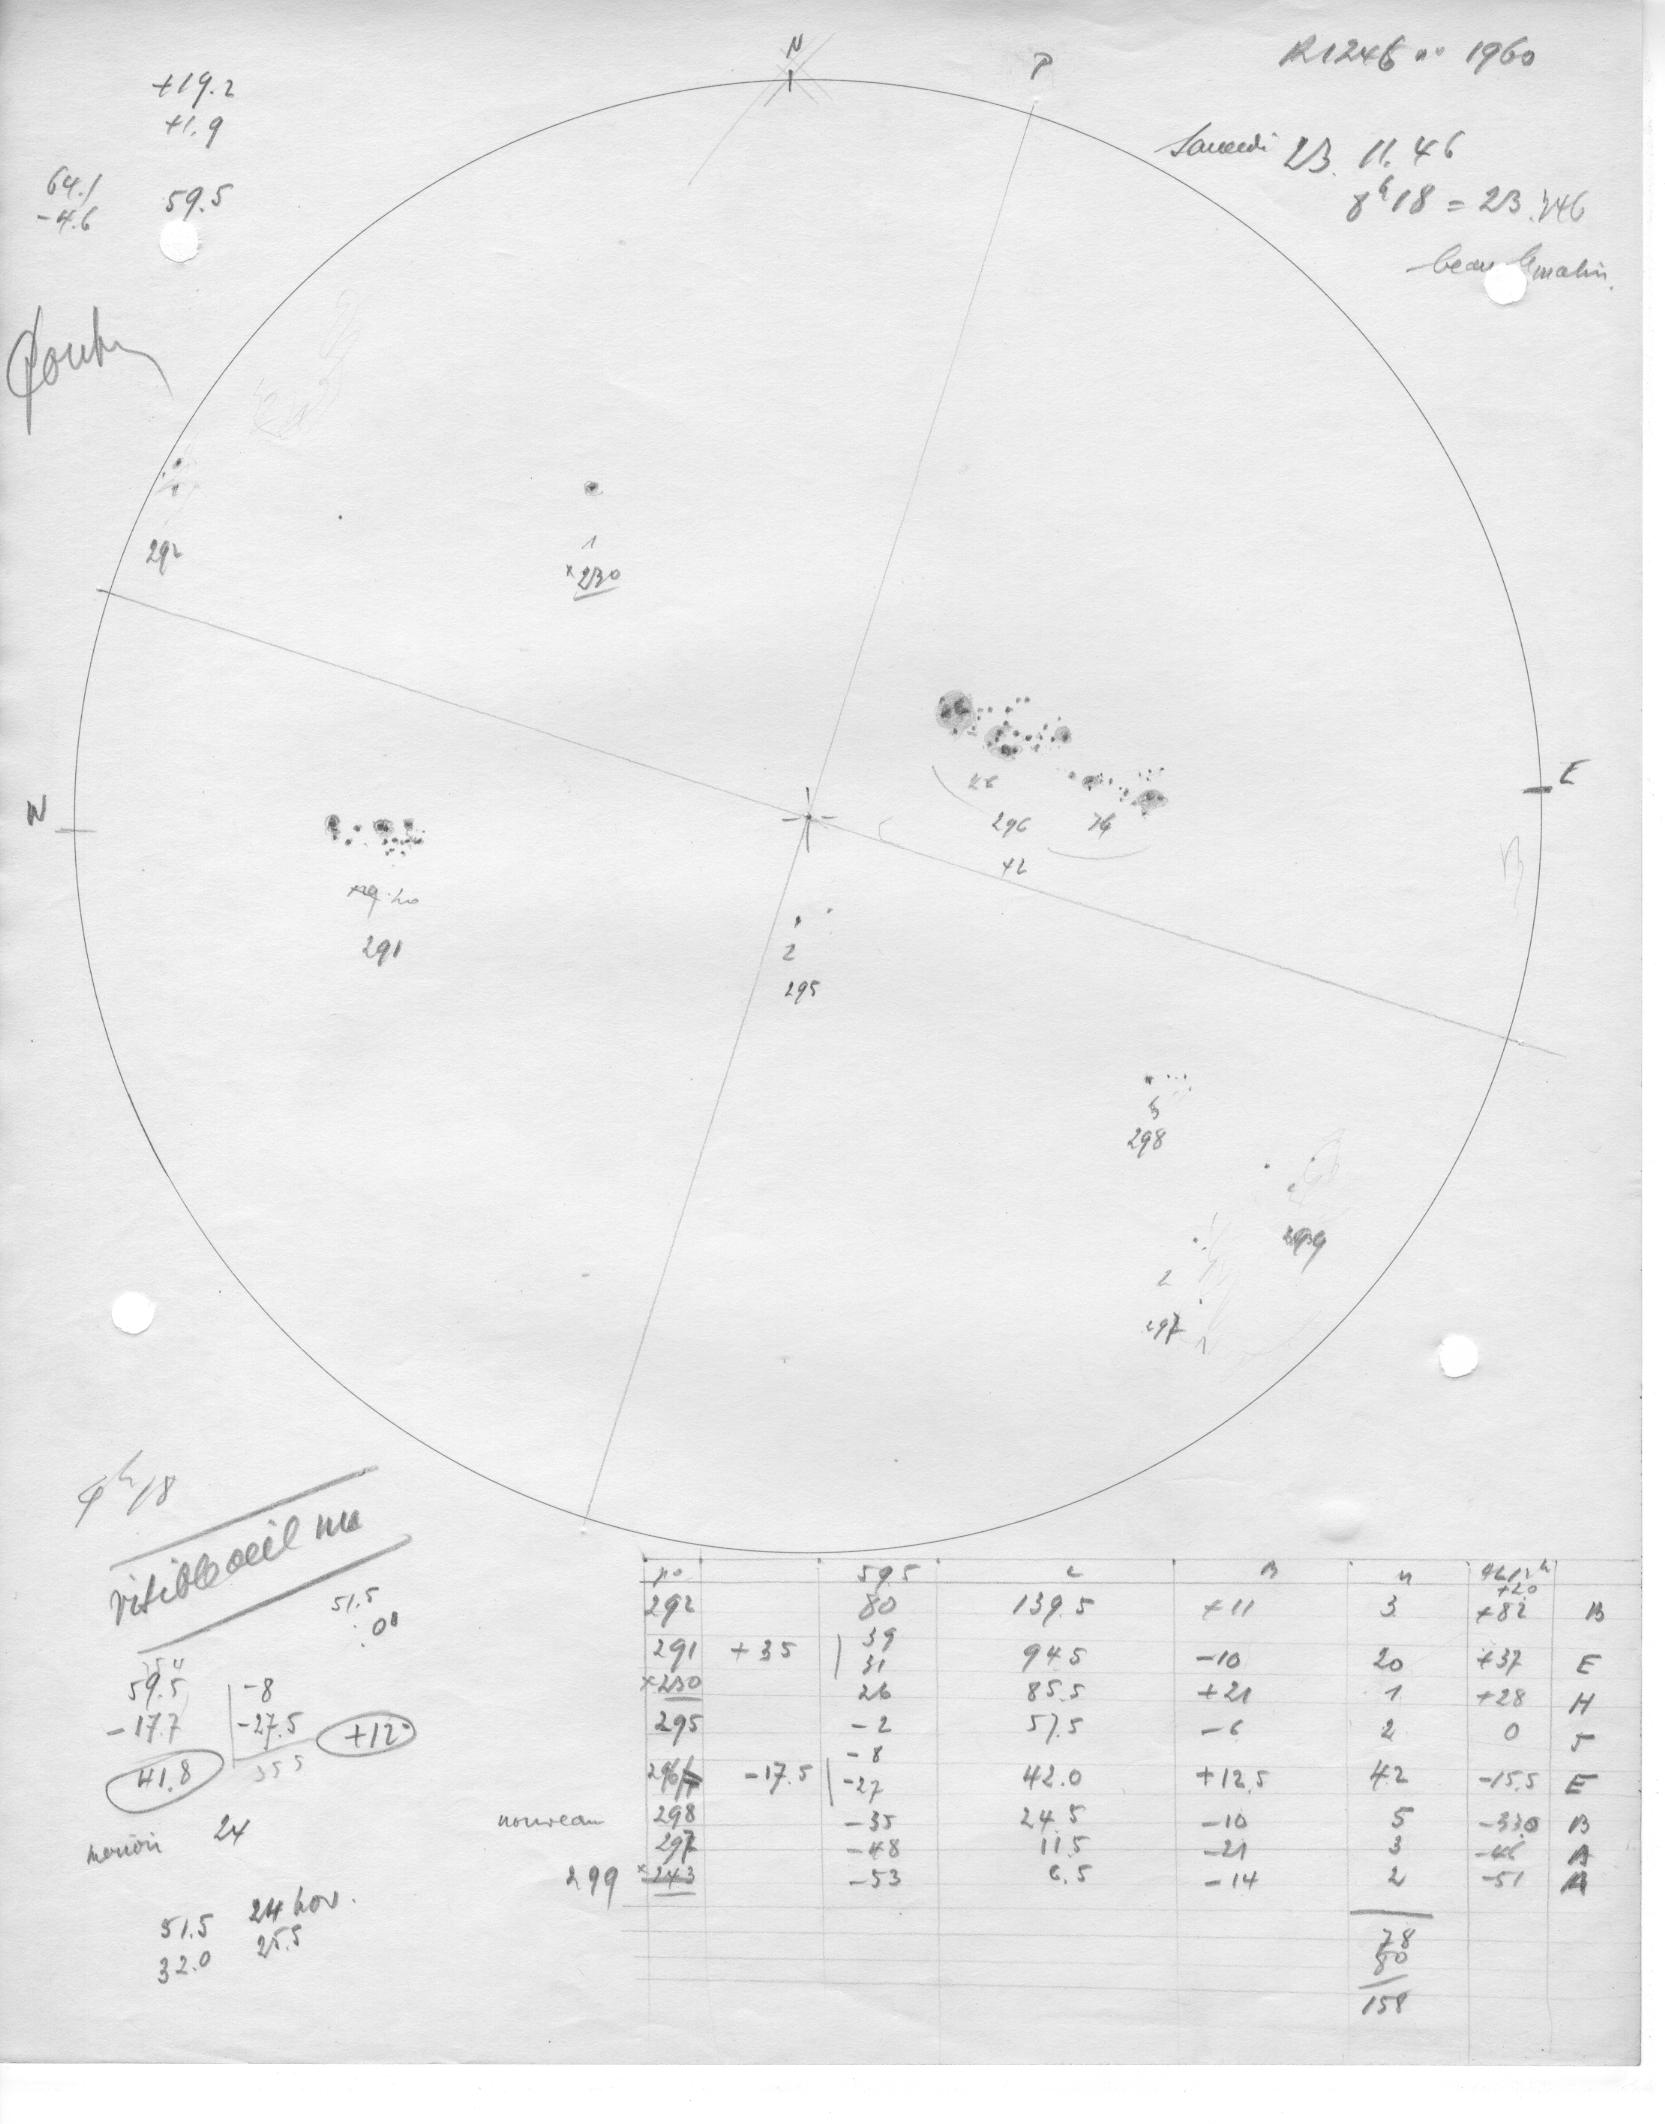 N
P
+19.2
+1.9
64.1
-4.6
59.5
R1246 no 1960
Samedi 23. 11. 46
8h18 = 23.346
beau matin.
292
1
x230
W
E
296
42
20
291
2
295
5
298
2
297
1
visible oeil nu
51.5
59.5 -8
-17.7 -27.5 +12
41.8 35.5
24
51.5 24 nov.
32.0 25.5
no 59.5 L B n
+20
292 80 139.5 +11 3 +82 B
291 +35 39 31 94.5 -10 20 +37 E
x230 26 85.5 +21 1 +28 H
295 -2 57.5 -6 2 0 J
296 -17.5 -8 -27 42.0 +12.5 42 -15.5 E
nouveau 298 -35 24.5 -10 5 -33.0 B
297 -48 11.5 -21 3 -46 A
299 x243 -53 6.5 -14 2 -51
78
80
158